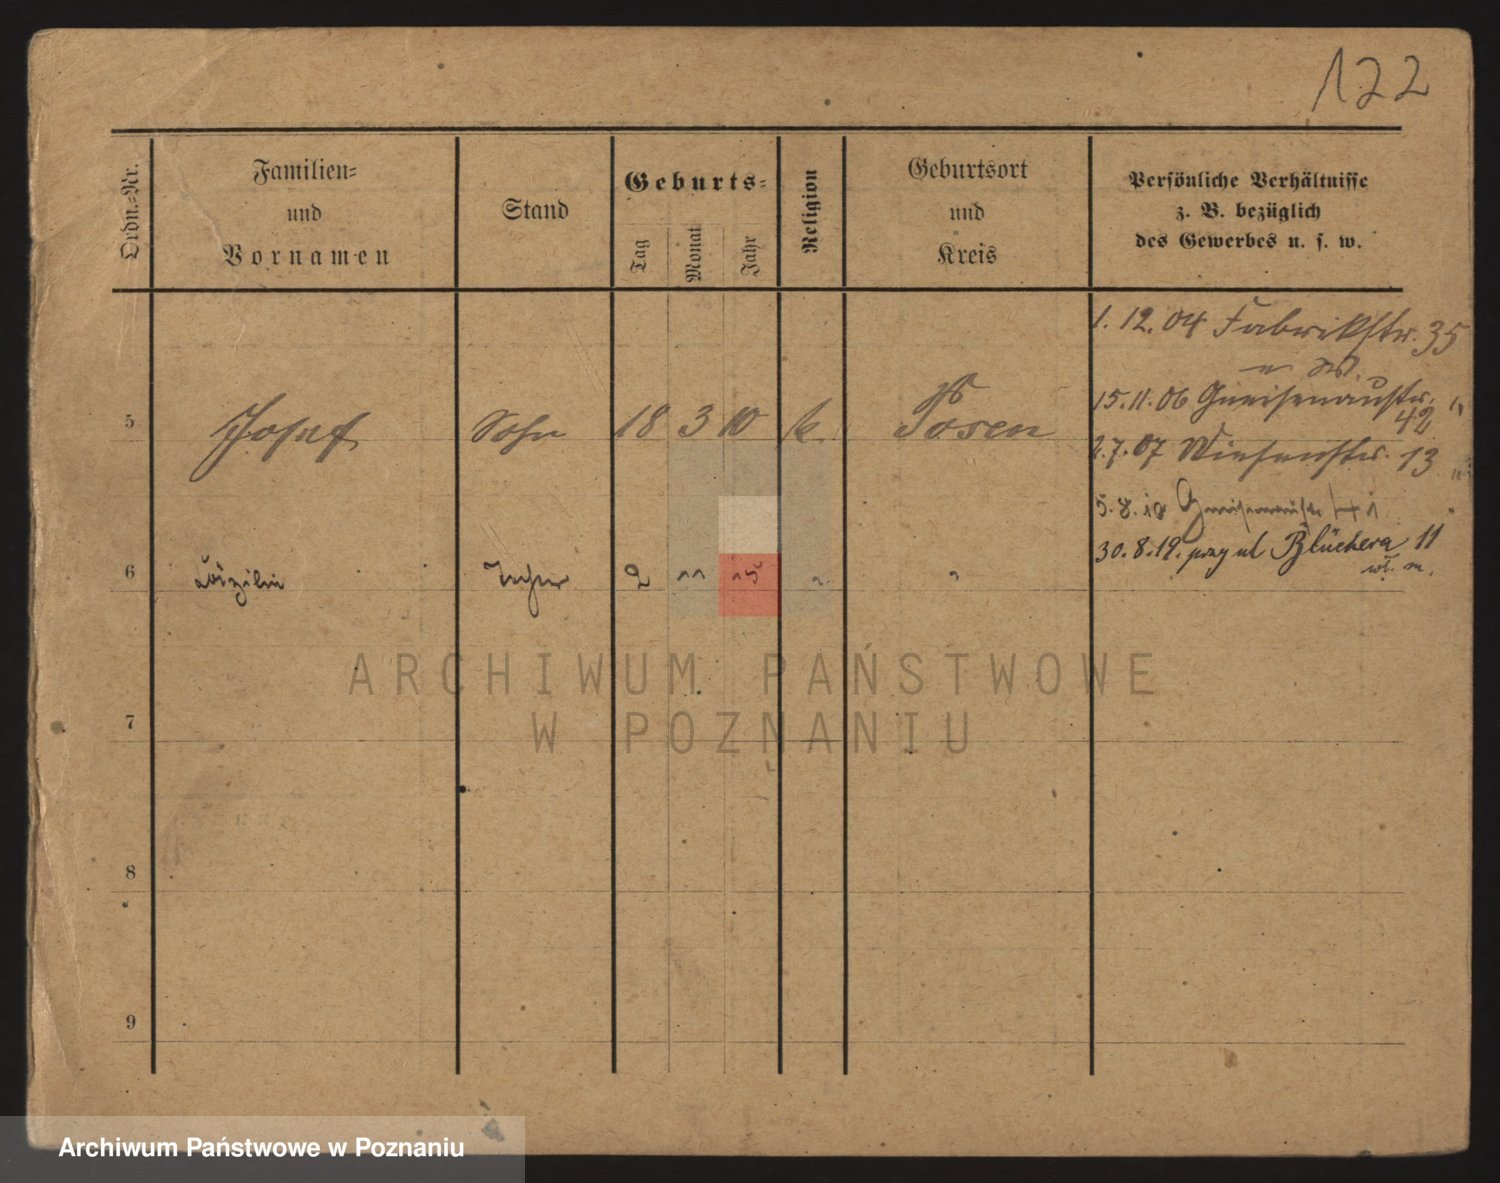 122
Ordn.-Nr.
Familien-
und
Vornamen
Stand
Geburts-
Tag
Monat
Jahr
Religion
Geburtsort
und
Kreis
Persönliche Verhältnisse
z. B. bezüglich
des Gewerbes u. s. w.
1. 12. 04 Fabrikstr. 35
15. 11. 06 Gneisenaustr. 42
5 Josef Sohn 18 3 10 k. Posen
2. 7. 07 Wiesenstr. 13
5. 8. 10 Gneisenaustr. 41
30. 8. 19. przy ul Blüchera 11
6 Cäzilie Tochter 2 11 15 " "
ARCHIWUM PAŃSTWOWE
W POZNANIU
7
8
9
Archiwum Państwowe w Poznaniu